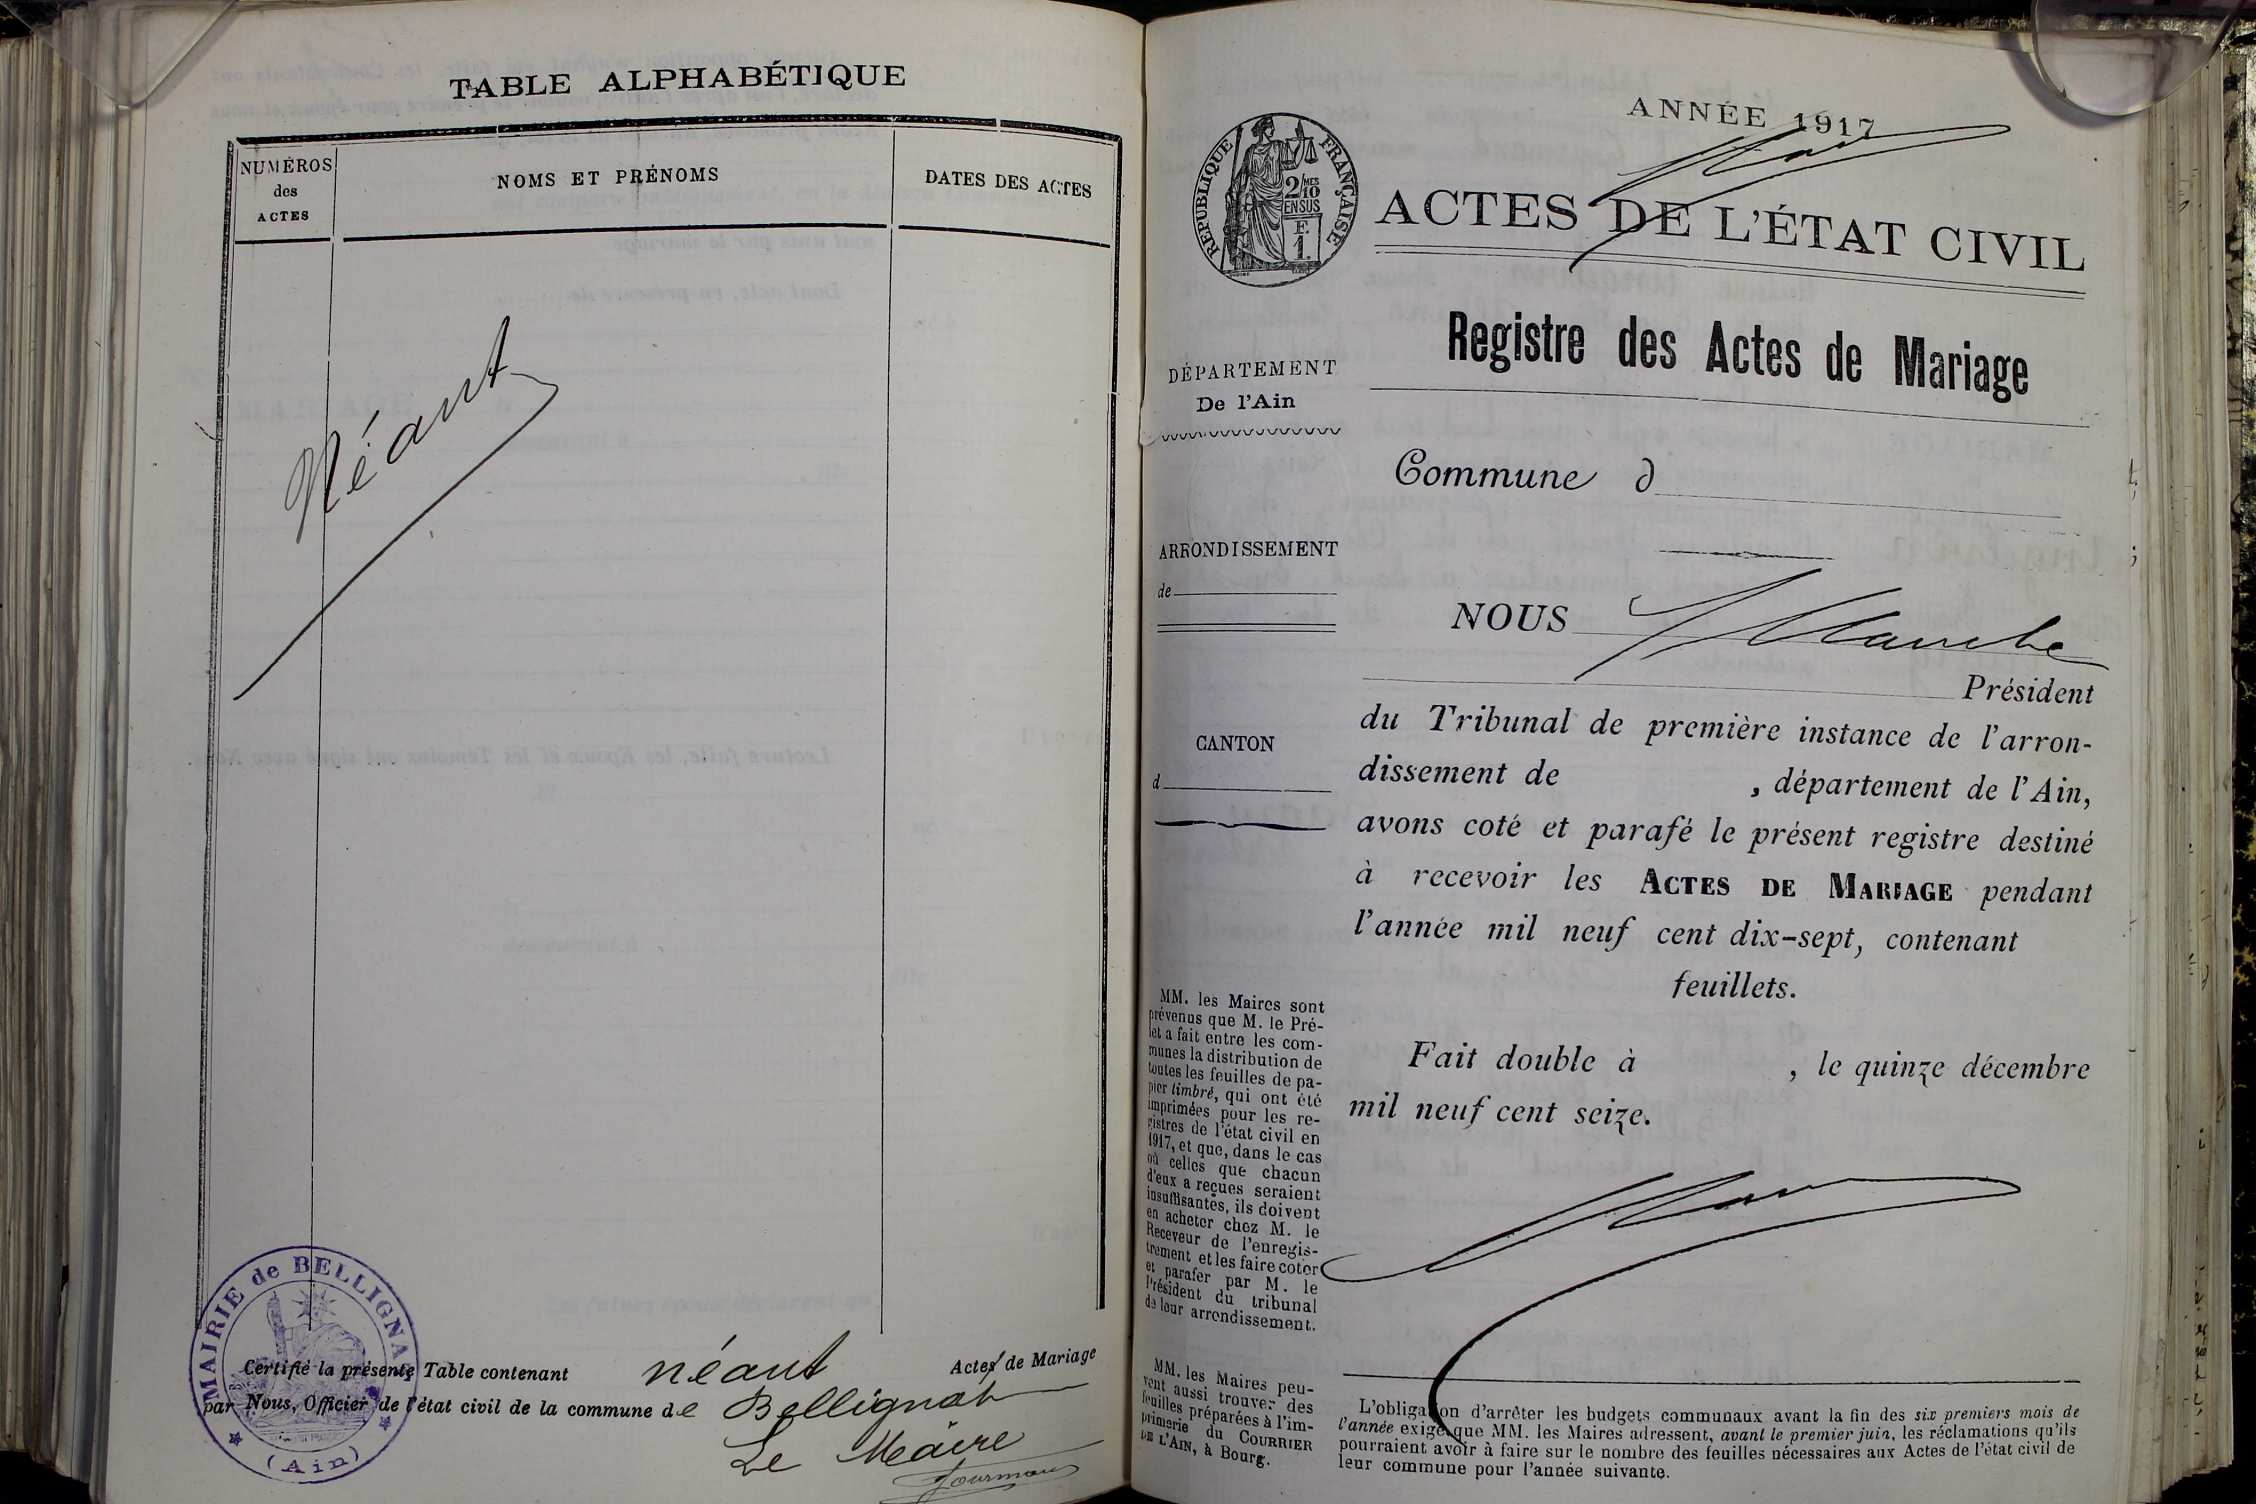 TABLE ALPHABÉTIQUE
NUMÉROS
des
ACTES
NOMS ET PRÉNOMS
DATES DES ACTES
Néant
MAIRIE de BELLIGNAT
(Ain)
Certifié la présente Table contenant néant Actes de Mariage
par Nous, Officier de l'état civil de la commune de Bellignat
Le Maire
ANNÉE 1917
RÉPUBLIQUE FRANÇAISE
2/MES
10
EN SUS
F.
1.
ACTES DE L'ÉTAT CIVIL
Registre des Actes de Mariage
DÉPARTEMENT
De l'Ain
Commune d
ARRONDISSEMENT
de
NOUS
Président
CANTON
d
du Tribunal de première instance de l'arron-
dissement de , département de l'Ain,
avons coté et parafé le présent registre destiné
à recevoir les ACTES DE MARIAGE pendant
l'année mil neuf cent dix-sept, contenant
feuillets.
Fait double à , le quinze décembre
mil neuf cent seize.
MM. les Maires sont
prévenus que M. le Pré-
fet a fait entre les com-
munes la distribution de
toutes les feuilles de pa-
pier timbré, qui ont été
imprimées pour les re-
gistres de l'état civil en
1917, et que, dans le cas
où celles que chacun
d'eux a reçues seraient
insuffisantes, ils doivent
en acheter chez M. le
Receveur de l'enregis-
trement et les faire coter
et parafer par M. le
Président du tribunal
de leur arrondissement.
MM. les Maires peu-
vent aussi trouver des
feuilles préparées à l'im-
primerie du COURRIER
DE L'AIN, à Bourg.
L'obligation d'arrêter les budgets communaux avant la fin des six premiers mois de
l'année exige que MM. les Maires adressent, avant le premier juin, les réclamations qu'ils
pourraient avoir à faire sur le nombre des feuilles nécessaires aux Actes de l'état civil de
leur commune pour l'année suivante.